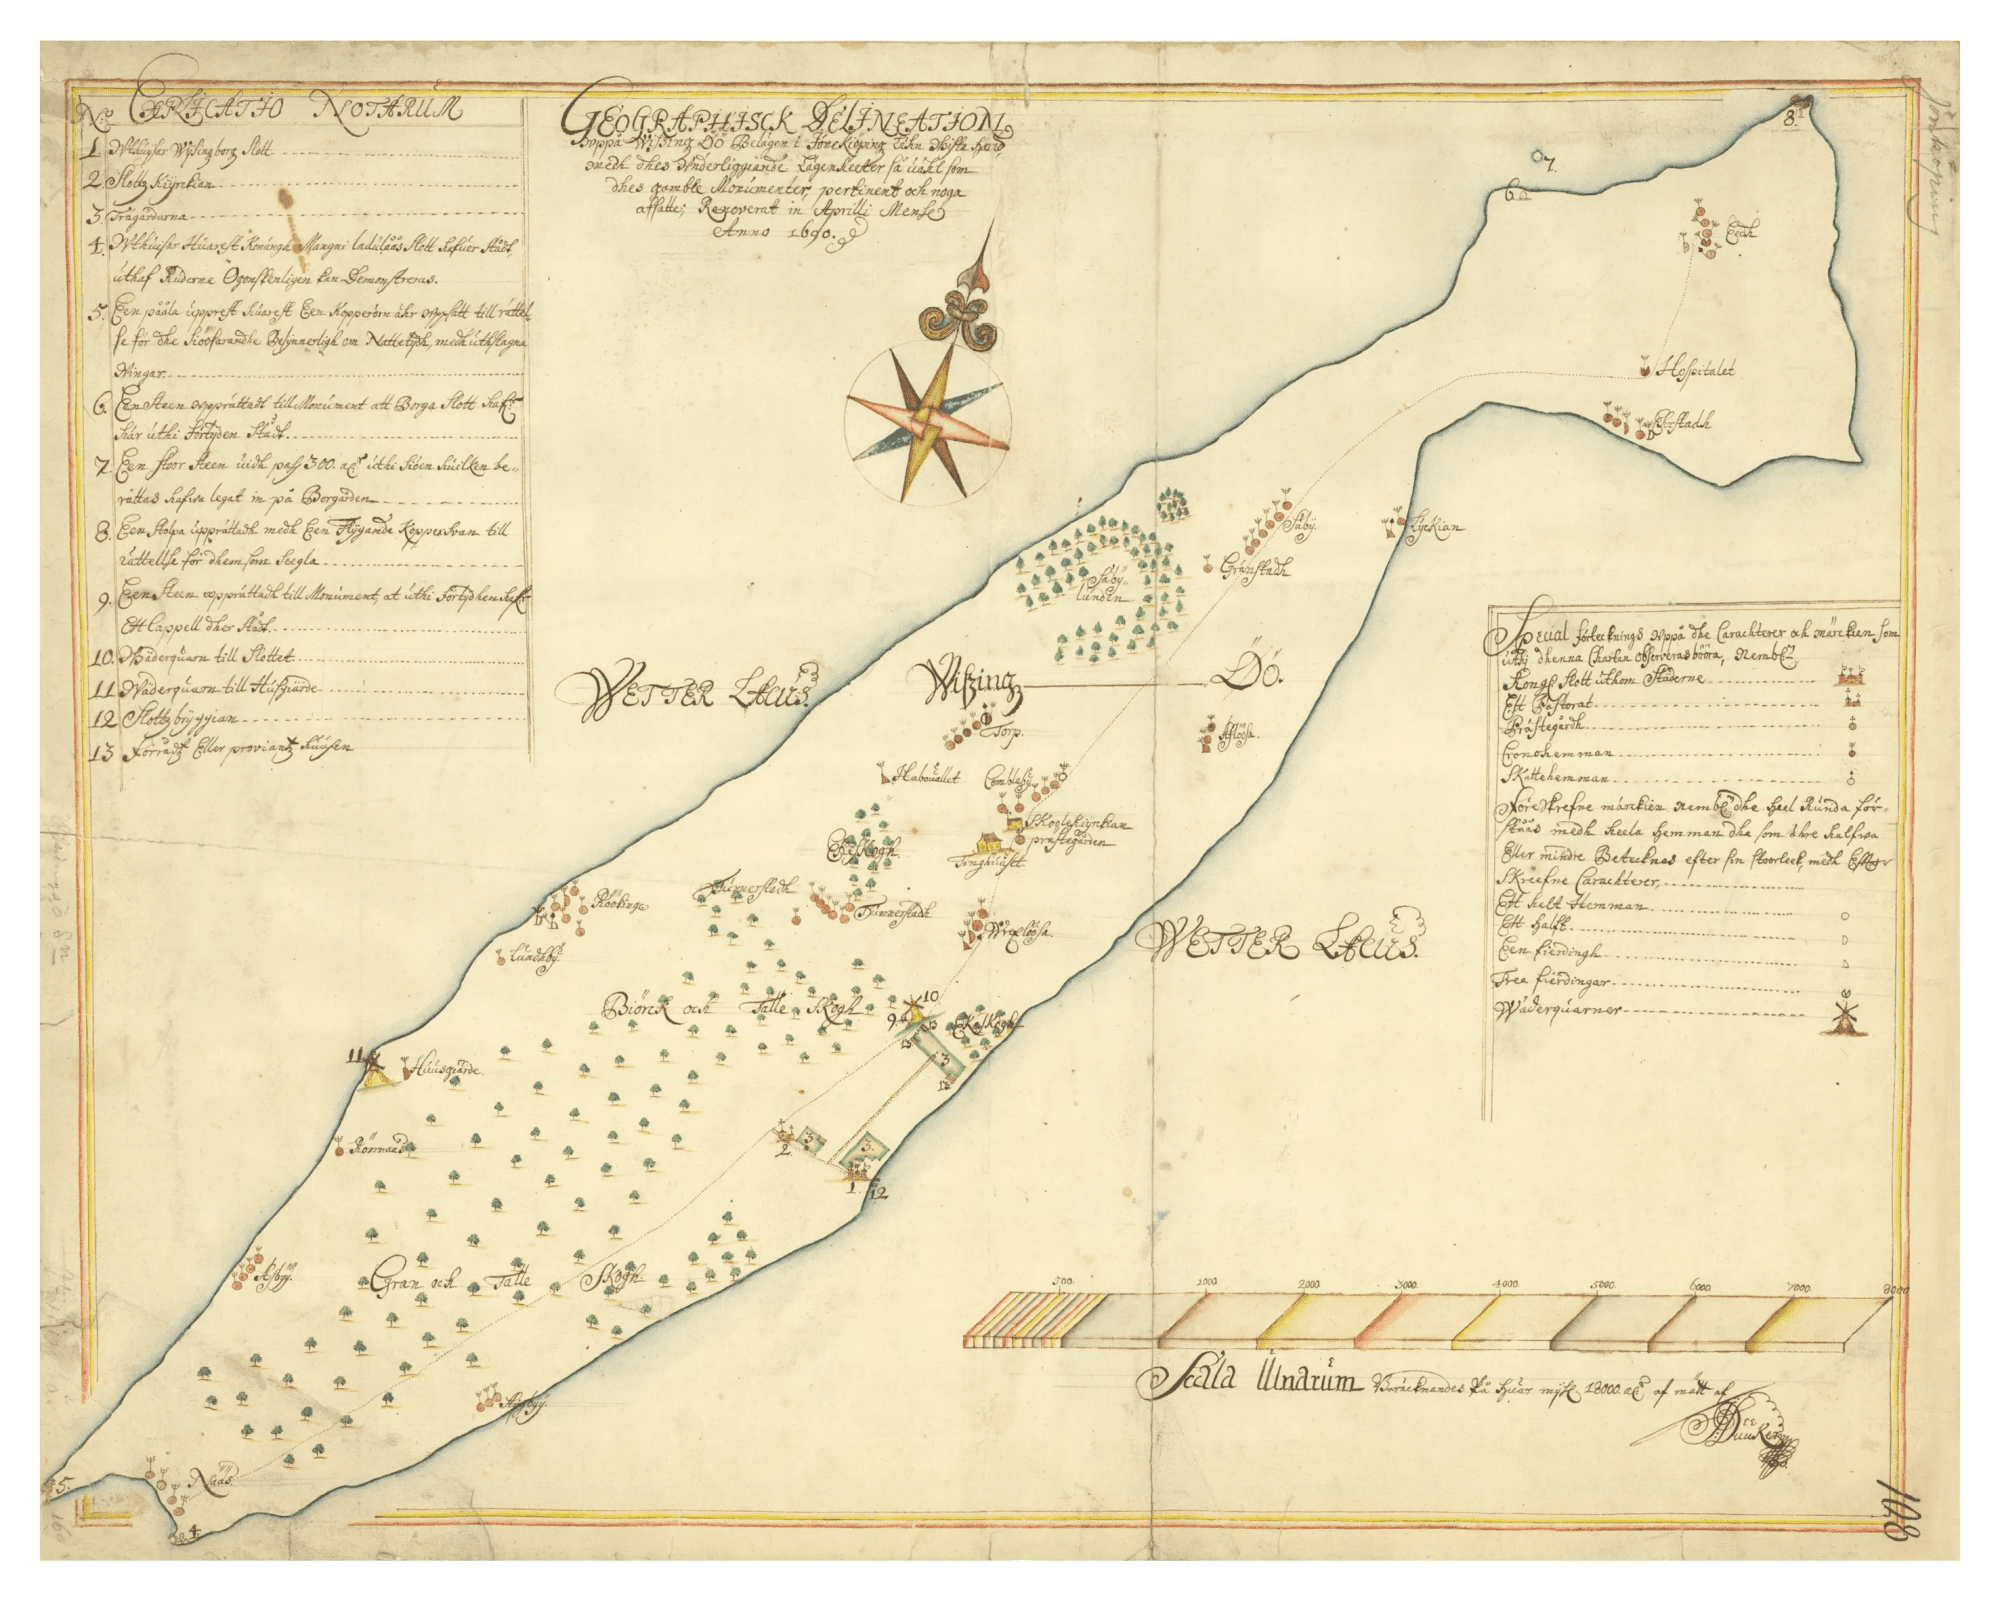 N:o Explicatio Notarum
1. Wthwijsar Wijsingborg Slott
2. Slottz Kyrckian
3. Trägårdarna
4. Wthwijsar Huarest Konungh Mangni ladulåås Slott hafuer Städt,
uthaf Ruderne Ögonskenligen kan Demonstreras.
5. Een pååla upprest huarest Een Kopperörn ähr uppsatt till rättel-
se för dhe Siööfarandhe Besynnerligh om Nattetijdh, medh uthslagna
Wingar
6. Een Steen upprättadt till Monument att Borga Slott haf:r
här uthi förtijden Städt.
7. Een stoor Steen widh pass 300. al:r uthi Siöen huilken be-
rättas hafwa legat in på Borgården
8. Een Stolpa upprättadh medh Een Flygande Koppersvan till
rättellse för dhem som Seegla
9. Een Steen upprättadh till Monument, at uthi Förtijdhen haf:r
Ett Cappell dher Städt.
10. Wäderquarn till Slottet
11 Wäderquarn till Husgiärde
12 Slottz bryggian
13 Förrådz Eller proviantz huusen
Geographisck Delineation
Uppå Wissingz Öö Belägen i Jönekiöping Lähn
medh dhes Underliggiande Lägenheeter så wähl som
dhes gamble Monumenter, pertinent och noga
affatte; Renoverat in Aprilli Mense
Anno 1690.
8.
7.
6
Eedh
Hospitalet
Stadh
Säby.
Lyckian
Grönstadh
Säby-
lunden
Wetter Lacus.
Wissingz Öö.
Torp.
Habouallet
Skogkyrkian
prästegården
Tinghuuset
Ekeskogh
Tunnerstadh
Tunnerstadh
Röökinge
Lundhby.
Wetter Lacus.
Biörck och Talle Skogh
10
9.
Ekeskogh
13
13
3
13
11
Huusgiärde.
2.
3
3.
1. 12
Asbyy.
Gran och Talle Skogh
Näås
5.
4.
Special förtecknings uppå dhe Carachterer och märckien som
uthj dhenna Chartan observeras bööra, nembl:n
Kongl Slott uthom Städerne
Ett Pastorat
Prästegårdh
Cronohemman
Skattehemman
Föreskrefne märckien nembl:n dhe heel Runda för-
stååås medh heela hemman dhe som ähre halfwa
Eller mindre Betecknas efter sin stoorleek, medh Efter
Skreefne Carachterer,
Ett helt Hemman
Ett Halft
Een fierdingh
Tree fierdingar
Wäderquarner
500. 1000 2000 3000. 4000. 5000. 6000. 7000. 8000
Scala Ulnarum
Jönköping
108